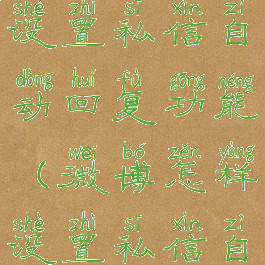 shè zhì sī xìn zì
设置私信自
dòng huí fù gōng néng
动回复功能
wēi bó zěn yàng
(微博怎样
shè zhì sī xìn zì
设置私信自